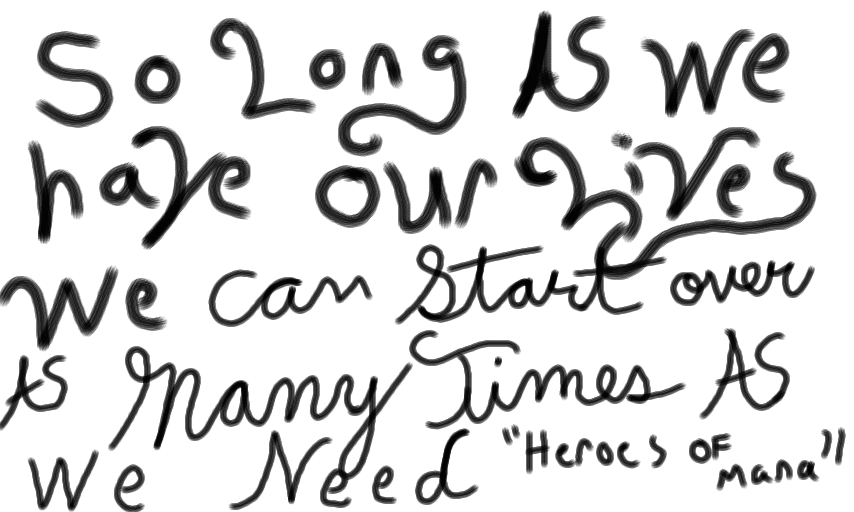 So Long As we
have our Lives
we can Start over
As many Times As
we Need "Heroes OF mana"